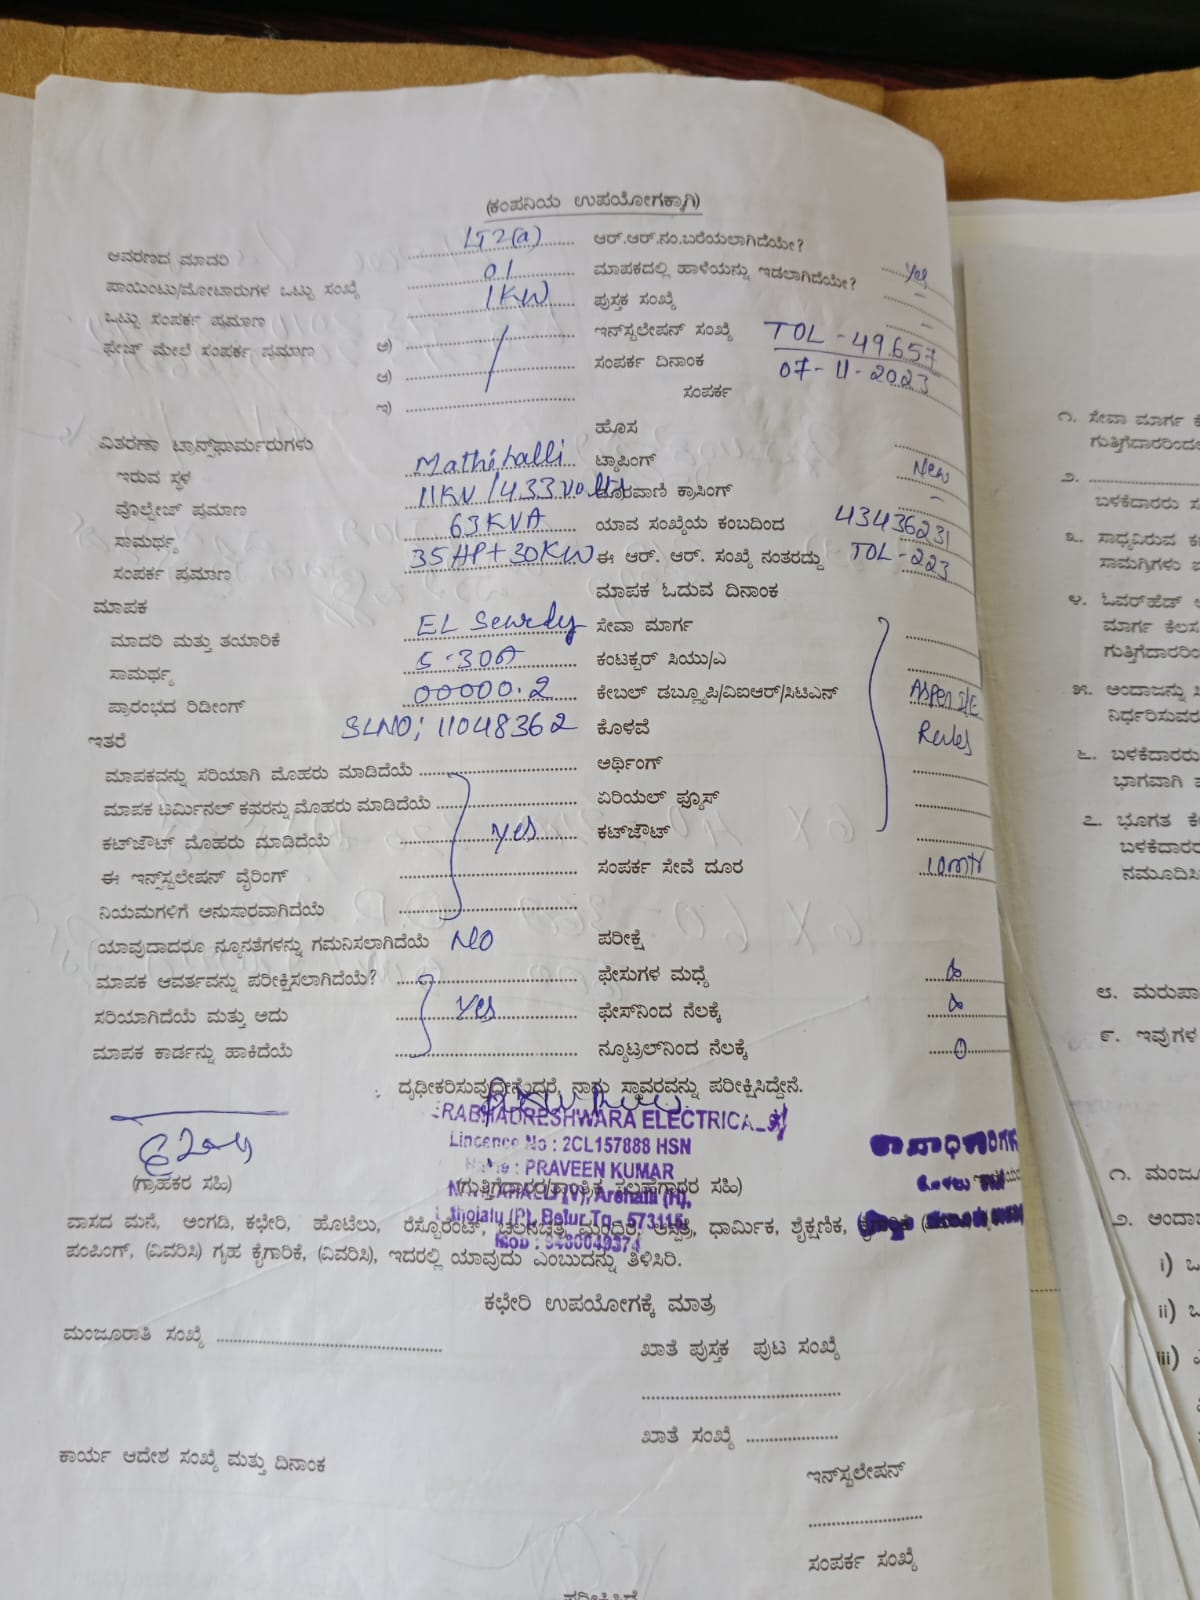 (ಕಂಪನಿಯ ಉಪಯೋಗಕ್ಕಾಗಿ)
ಆವರಣದ ಮಾದರಿ LT2(a) ಆರ್.ಆರ್.ನಂ.ಬರೆಯಲಾಗಿದೆಯೇ? Yes
ಪಾಯಿಂಟು/ಮೋಟಾರುಗಳ ಒಟ್ಟು ಸಂಖ್ಯೆ 01 ಮಾಪಕದಲ್ಲಿ ಹಾಳೆಯನ್ನು ಇಡಲಾಗಿದೆಯೇ? –
ಒಟ್ಟು ಸಂಪರ್ಕ ಪ್ರಮಾಣ 1KW ಪುಸ್ತಕ ಸಂಖ್ಯೆ –
ಫೇಜ್ ಮೇಲೆ ಸಂಪರ್ಕ ಪ್ರಮಾಣ ಅ) ಇನ್‌ಸ್ಟಲೇಷನ್ ಸಂಖ್ಯೆ TOL - 49657
ಆ) ಸಂಪರ್ಕ ದಿನಾಂಕ 07-11-2023
ಇ) ಸಂಪರ್ಕ
ವಿತರಣಾ ಟ್ರಾನ್ಸ್‌ಫಾರ್ಮರುಗಳು ಹೊಸ
ಇರುವ ಸ್ಥಳ Mathihalli ಟ್ಯಾಪಿಂಗ್ New
ವೋಲ್ಟೇಜ್ ಪ್ರಮಾಣ 11KV/433volts ದೂರವಾಣಿ ಕ್ರಾಸಿಂಗ್ –
ಸಾಮರ್ಥ್ಯ 63KVA ಯಾವ ಸಂಖ್ಯೆಯ ಕಂಬದಿಂದ 43436231
ಸಂಪರ್ಕ ಪ್ರಮಾಣ 35HP+30KW ಈ ಆರ್. ಆರ್. ಸಂಖ್ಯೆ ನಂತರದ್ದು TOL - 223
ಮಾಪಕ ಮಾಪಕ ಓದುವ ದಿನಾಂಕ
ಮಾದರಿ ಮತ್ತು ತಯಾರಿಕೆ EL ಸೇವಾ ಮಾರ್ಗ
ಸಾಮರ್ಥ್ಯ 5-30A ಕಂಟಕ್ಟರ್ ಸಿಯು/ಎ
ಪ್ರಾರಂಭದ ರಿಡೀಂಗ್ 00000.2 ಕೇಬಲ್ ಡಬ್ಲ್ಯೂಪಿ/ವಿಐಆರ್/ಸಿಟಿಎನ್ ASper I/E
ಇತರೆ SLNO; 11048362 ಕೊಳವೆ Rules
ಮಾಪಕವನ್ನು ಸರಿಯಾಗಿ ಮೊಹರು ಮಾಡಿದೆಯೆ ಅರ್ಥಿಂಗ್
ಮಾಪಕ ಟರ್ಮಿನಲ್ ಕವರನ್ನು ಮೊಹರು ಮಾಡಿದೆಯೆ ಏರಿಯಲ್ ಫ್ಯೂಸ್
ಕಟ್‌ಔಟ್ ಮೊಹರು ಮಾಡಿದೆಯೆ yes ಕಟ್‌ಔಟ್
ಈ ಇನ್ಸ್‌ಸ್ಟಲೇಷನ್ ವೈರಿಂಗ್ ಸಂಪರ್ಕ ಸೇವೆ ದೂರ 10mtr
ನಿಯಮಗಳಿಗೆ ಅನುಸಾರವಾಗಿದೆಯೆ
ಯಾವುದಾದರೂ ನ್ಯೂನತೆಗಳನ್ನು ಗಮನಿಸಲಾಗಿದೆಯೆ NO ಪರೀಕ್ಷೆ
ಮಾಪಕ ಆವರ್ತವನ್ನು ಪರೀಕ್ಷಿಸಲಾಗಿದೆಯೆ? ಫೇಸುಗಳ ಮಧ್ಯೆ
ಸರಿಯಾಗಿದೆಯೆ ಮತ್ತು ಅದು yes ಫೇಸ್‌ನಿಂದ ನೆಲಕ್ಕೆ
ಮಾಪಕ ಕಾರ್ಡನ್ನು ಹಾಕಿದೆಯೆ ನ್ಯೂಟ್ರಲ್‌ನಿಂದ ನೆಲಕ್ಕೆ 0
ದೃಢೀಕರಿಸುವುದೇನೆಂದರೆ, ನಾವು ಸ್ಥಾವರವನ್ನು ಪರೀಕ್ಷಿಸಿದ್ದೇನೆ.
RABHADRESHWARA ELECTRICA
Lincence No : 2CL157888 HSN
: PRAVEEN KUMAR
(ಗ್ರಾಹಕರ ಸಹಿ) (ಗುತ್ತಿಗೆದಾರರ/ತಾಂತ್ರಿಕ ಸಲಹೆಗಾರರ ಸಹಿ)
Belur Tq - 573115
ವಾಸದ ಮನೆ, ಅಂಗಡಿ, ಕಛೇರಿ, ಹೊಟೆಲು, ರೆಸ್ಟೊರೆಂಟ್, ಚಲನಚಿತ್ರ, ಮಂದಿರ, ಆಸ್ಪತ್ರೆ, ಧಾರ್ಮಿಕ, ಶೈಕ್ಷಣಿಕ,
Mob : 9480049374
ಪಂಪಿಂಗ್, (ವಿವರಿಸಿ) ಗೃಹ ಕೈಗಾರಿಕೆ, (ವಿವರಿಸಿ), ಇದರಲ್ಲಿ ಯಾವುದು ಎಂಬುದನ್ನು ತಿಳಿಸಿರಿ.
ಕಛೇರಿ ಉಪಯೋಗಕ್ಕೆ ಮಾತ್ರ
ಮಂಜೂರಾತಿ ಸಂಖ್ಯೆ ಖಾತೆ ಪುಸ್ತಕ ಪುಟ ಸಂಖ್ಯೆ
ಖಾತೆ ಸಂಖ್ಯೆ
ಕಾರ್ಯ ಆದೇಶ ಸಂಖ್ಯೆ ಮತ್ತು ದಿನಾಂಕ ಇನ್‌ಸ್ಟಲೇಷನ್
ಸಂಪರ್ಕ ಸಂಖ್ಯೆ
೧. ಸೇವಾ ಮಾರ್ಗ
ಗುತ್ತಿಗೆದಾರರಿಂದ
೨.
ಬಳಕೆದಾರರು
೩. ಸಾಧ್ಯವಿರುವ
ಸಾಮಗ್ರಿಗಳು
೪. ಓವರ್‌ಹೆಡ್
ಮಾರ್ಗ ಕೆಲಸ
ಗುತ್ತಿಗೆದಾರರಿಂ
೫. ಅಂದಾಜನ್ನು
ನಿರ್ಧರಿಸುವರ
೬. ಬಳಕೆದಾರರು
ಭಾಗವಾಗಿ
೭. ಭೂಗತ
ಬಳಕೆದಾರರ
ನಮೂದಿಸಿ
೮. ಮರುಪಾ
೯. ಇವುಗಳ
೧. ಮಂಜೂ
೨. ಅಂದಾ
i)
ii)
iii)